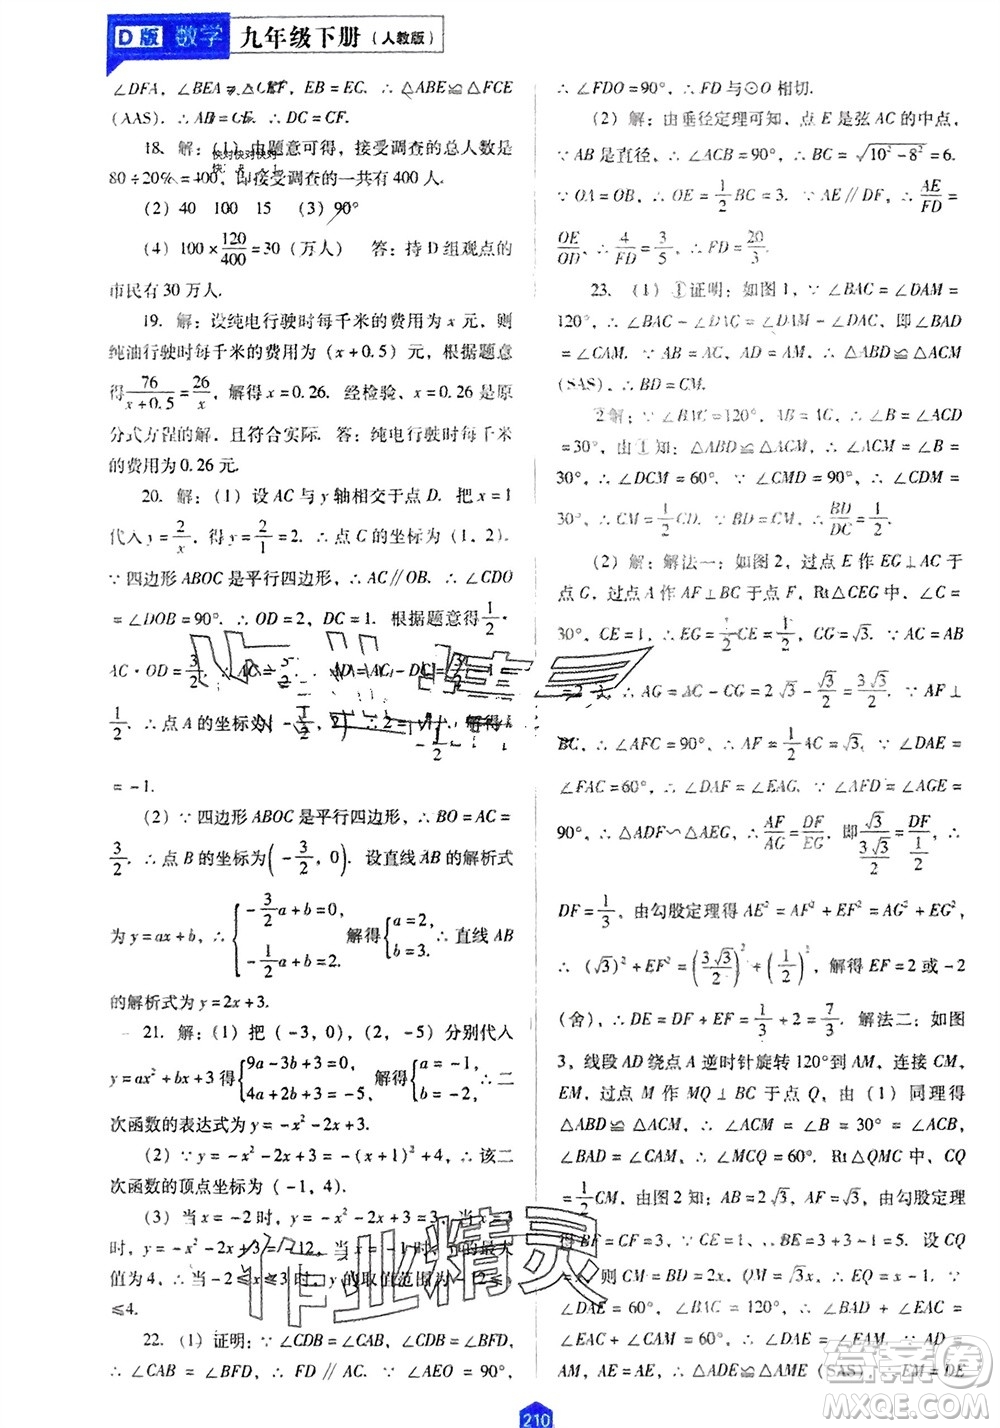 D 版 数学 九年级下册（人教版）
∠DFA，∠BEA = ∠CEF，EB = EC. ∴ △ABE≌△FCE
(AAS). ∴ AB = CF. ∴ DC = CF.
18. 解：(1) 由题意可得，接受调查的总人数是
快对快对快对
80 ÷20% = 400，即接受调查的一共有 400 人.
(2) 40 100 15 (3) 90°
(4) 100 × 120/400 = 30 (万人) 答：持 D 组观点的
市民有 30 万人.
19. 解：设纯电行驶时每千米的费用为 x 元，则
纯油行驶时每千米的费用为 (x + 0.5) 元，根据题意
得 76/(x + 0.5) = 26/x，解得 x = 0.26. 经检验、x = 0.26 是原
分式方程的解，且符合实际. 答：纯电行驶时每千米
的费用为 0.26 元.
20. 解：(1) 设 AC 与 y 轴相交于点 D. 把 x = 1
代入 y = 2/x，得 y = 2/1 = 2. ∴ 点 C 的坐标为 (1，2).
∵ 四边形 ABOC 是平行四边形，∴ AC∥OB. ∴ ∠CDO
= ∠DOB = 90°. ∴ OD = 2，DC = 1. 根据题意得 1/2 ·
AC · OD = 3/2，∴ AC =
1/2. ∴ 点 A 的坐标为
= -1.
(2) ∵ 四边形 ABOC 是平行四边形，∴ BO = AC =
3/2. ∴ 点 B 的坐标为 (-3/2，0). 设直线 AB 的解析式
为 y = ax + b，∴ { -3/2 a + b = 0, -1/2 a + b = 2. 解得 { a = 2, b = 3. ∴ 直线 AB
的解析式为 y = 2x + 3.
21. 解：(1) 把 (-3，0)，(2，-5) 分别代入
y = ax² + bx + 3 得 { 9a - 3b + 3 = 0, 4a + 2b + 3 = -5. 解得 { a = -1, b = -2. ∴ 二
次函数的表达式为 y = -x² - 2x + 3.
(2) ∵ y = -x² - 2x + 3 = -(x + 1)² + 4，∴ 该二
次函数的顶点坐标为 (-1，4).
(3) 当 x = -2 时，y = 3；当 x = 3
时，y = -x² - 2x + 3 = -12. 的最大
值为 4，∴ 当 -2 ≤ x ≤ 3 时，y 的取值范围为 -12 ≤ y
≤4.
22. (1) 证明：∵ ∠CDB = ∠CAB，∠CDB = ∠BFD，
∴ ∠CAB = ∠BFD，∴ FD∥AC. ∵ ∠AEO = 90°，
∴ ∠FDO = 90°，∴ FD 与⊙O 相切.
(2) 解：由垂径定理可知，点 E 是弦 AC 的中点，
∵ AB 是直径，∴ ∠ACB = 90°，∴ BC = √(10² - 8²) = 6.
∵ OA = OB，∴ OE = 1/2 BC = 3. ∵ AE∥DF，∴ AE/FD =
OE/OD. ∴ 4/FD = 3/5. ∴ FD = 20/3.
23. (1) ①证明：如图 1，∵ ∠BAC = ∠DAM =
120°，∴ ∠BAC - ∠DAC = ∠DAM - ∠DAC，即∠BAD
= ∠CAM. ∵ AB = AC，AD = AM，∴ △ABD≌△ACM
(SAS). ∴ BD = CM.
②解：∵ ∠BAC = 120°，AB = AC，∴ ∠B = ∠ACD
= 30°，由①知：△ABD ≌ △ACM，∴ ∠ACM = ∠B =
30°. ∴ ∠DCM = 60°. ∵ ∠CMD = 90°，∴ ∠CDM =
30°，∴ CM = 1/2 CD. ∵ BD = CM，∴ BD/DC = 1/2.
(2) 解：解法一：如图 2，过点 E 作 EG⊥AC 于
点 G，过点 A 作 AF⊥BC 于点 F，Rt△CEG 中，∠C =
30°，CE = 1，∴ EG = 1/2 CE = 1/2，CG = √3/2. ∵ AC = AB
= 2√3，∴ AG = AC - CG = 2√3 - √3/2 = 3√3/2. ∵ AF⊥
BC，∴ ∠AFC = 90°，∴ AF = 1/2 AC = √3. ∵ ∠DAE =
∠FAC = 60°，∴ ∠DAF = ∠EAG. ∵ ∠AFD = ∠AGE =
90°，∴ △ADF∽△AEG，∴ AF/AG = DF/EG. 即 √3/(3√3/2) = DF/(1/2)，∴
DF = 1/3，由勾股定理得 AE² = AF² + EF² = AG² + EG²，
∴ (√3)² + EF² = (3√3/2)² + (1/2)²，解得 EF = 2 或 -2
(舍)，∴ DE = DF + EF = 1/3 + 2 = 7/3. 解法二：如图
3，线段 AD 绕点 A 逆时针旋转 120°到 AM，连接 CM，
EM，过点 M 作 MQ ⊥ BC 于点 Q，由 (1) 同理得
△ABD ≌ △ACM，∴ ∠ACM = ∠B = 30° = ∠ACB，
∠BAD = ∠CAM，∴ ∠MCQ = 60°. Rt△QMC 中，CQ
= 1/2 CM，MQ = √3/2 CM，由图 2 知：AF = √3，由勾股定理
得 BF = CF = 3，∴ BE = 3 + 3 - 1 = 5. 设 CQ
= x，则 CM = BD = 2x，QM = √3x，∴ EQ = x - 1. ∵
∠DAE = 60°，∠BAC = 120°，∴ ∠BAD + ∠EAC =
∠EAC + ∠CAM = 60°，∴ ∠DAE = ∠EAM. ∵ AD =
AM，AE = AE，∴ △ADE≌△AME (SAS)，∴ EM = DE
作业精灵
答案圈
MXQE.COM
210